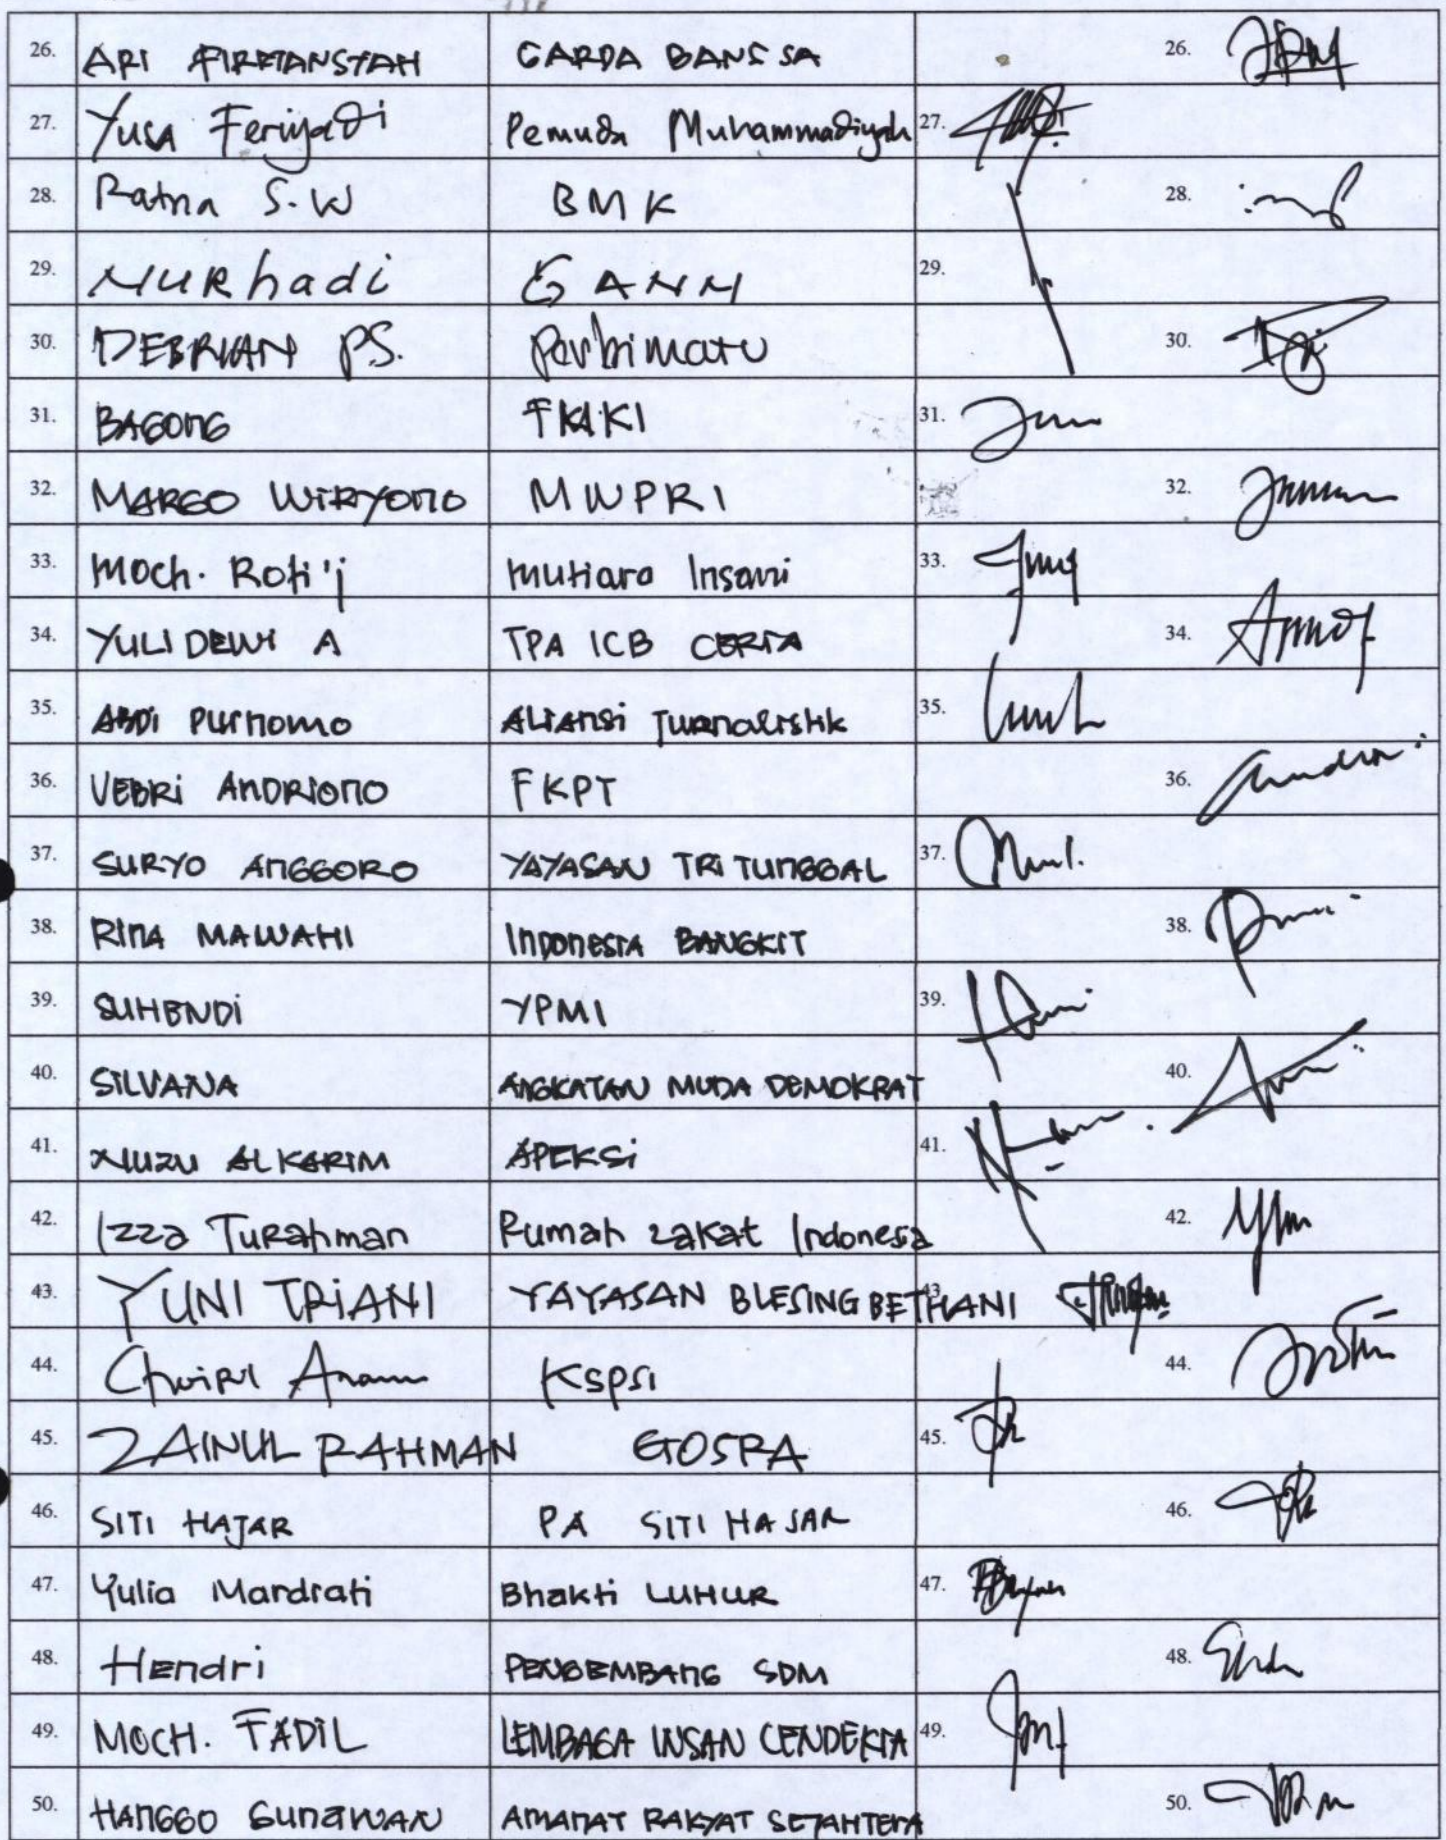 26. ARI FIRMANSYAH GARDA BANGSA 26.
27. Yusa Feriyadi Pemuda Muhammadiyah 27.
28. Ratna S.W BMK 28.
29. NURhadi GANN 29.
30. DEBRIAN PS. Perbimatu 30.
31. BAGONG FKAKI 31.
32. MARGO WIRYONO MWPRI 32.
33. Moch. Rofi'i Mutiara Insani 33.
34. YULI DEWI A TPA ICB CERIA 34.
35. ABDI PURNOMO ALIANSI Jurnalistik 35.
36. VEBRI ANDRIONO FKPT 36.
37. SURYO ANGGORO YAYASAN TRITUNGGAL 37.
38. RINA MAWAHI INDONESIA BANGKIT 38.
39. SUHENDI YPMI 39.
40. SILVANA ANGKATAN MUDA DEMOKRAT 40.
41. NUZU ALKARIM APEKSI 41.
42. Izza Turahman Rumah zakat Indonesa 42.
43. YUNI TRIANI YAYASAN BLESING BETHANI 43
44. Choirul Anam KSPSI 44.
45. ZAINUL RAHMAN GOSPA 45.
46. SITI HAJAR PA SITI HAJAR 46.
47. Yulia Mardrati Bhakti LUHUR 47.
48. Hendri PENGEMBANG SDM 48.
49. MOCH. FADIL LEMBAGA INSAN CENDEKIA 49.
50. HANGGO GUNAWAN AMANAT RAKYAT SEJAHTERA 50.